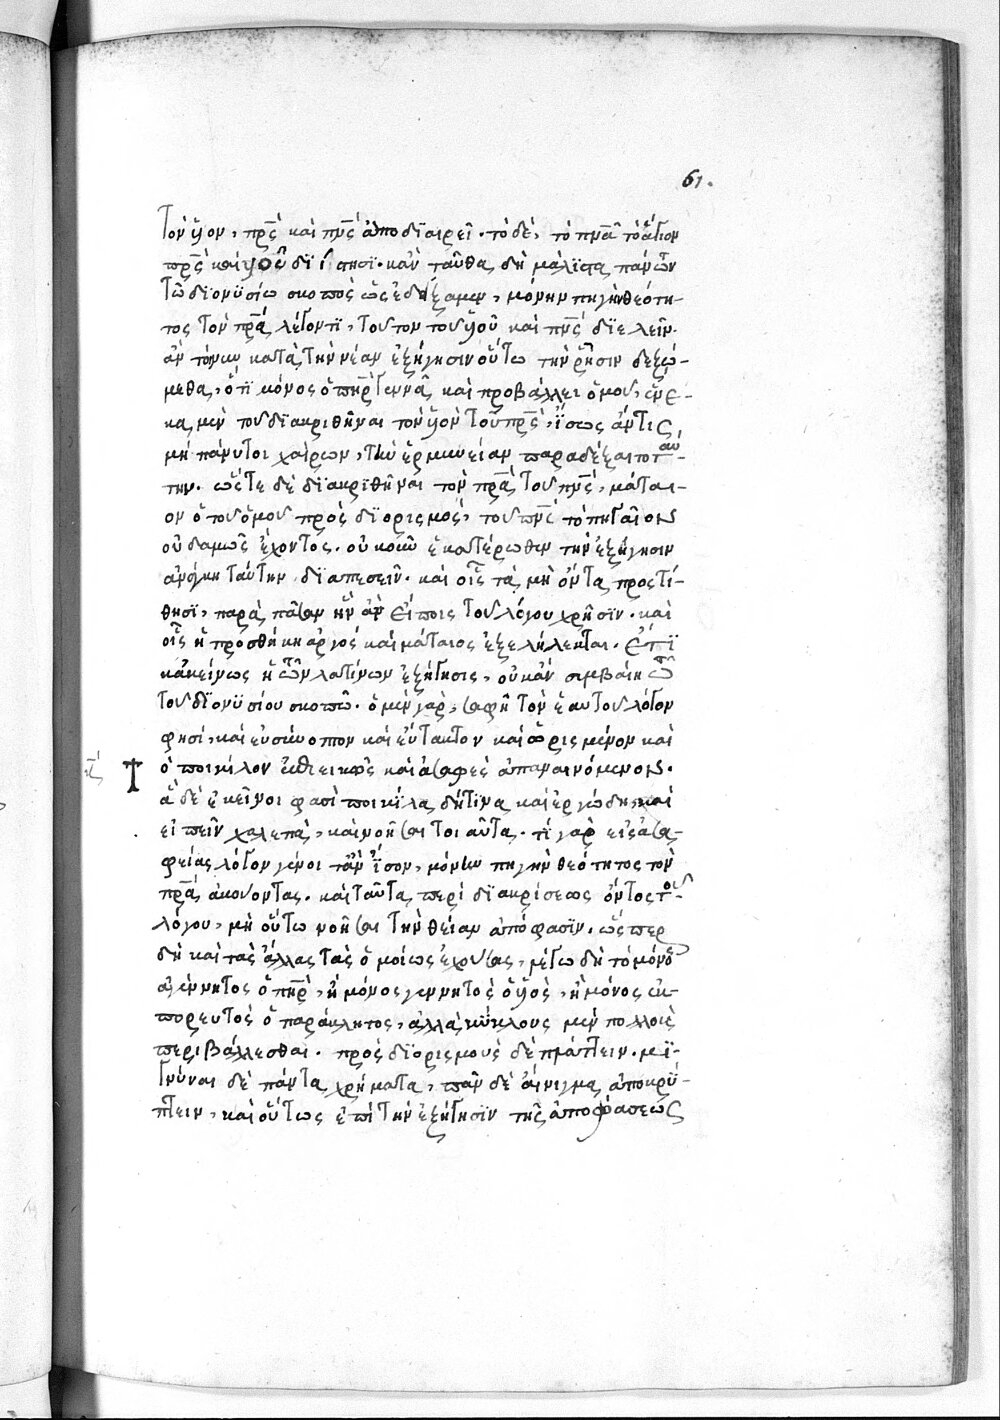 61.
τὸν ὑὸν, πρ̅ς καὶ πν̅ς ἀποδιαιρεῖ. τὸ δὲ, τὸ πν̅α τὸ ἅγιον
πρ̅ς καὶ ὑοῦ διΐστησι. κἂν ταῦθα δὴ μάλιστα πάντων
τῶ διονυσίω σκοπὸς ὡς ἐδείξαμεν, μόνην πηγὴν θεότη-
τος τὸν πρ̅α λέγοντι, τοῦτον τοῦ ὑοῦ καὶ πν̅ς διελεῖν.
ἂν τοίνυν κατὰ τὴν νέαν ἐξήγησιν οὕτω τὴν ῥῆσιν δεξώ-
μεθα, ὅτι μόνος ὁ πη̅ρ γεννᾶ καὶ προβάλλει ὁμοῦ, ἕνε-
κα μὲν τοῦ διακριθῆναι τὸν ὑὸν τοῦ πρ̅ς, ἴσως ἄν τις
μὴ πάνυ τοι χαίρων, τὴν ἑρμηνείαν παραδέξαιτο ταύ-
την. ὥστε δὲ διακριθῆναι τὸν πρ̅α τοῦ πν̅ς, μάται-
ον ὁ τοῦ ὁμοῦ προσδιορισμός, τοῦ πν̅ς τὸ πηγαῖον
οὐδαμῶς ἔχοντος. οὐκοῦν ἑκατέρωθεν τὴν ἐξήγησιν
ἀνάγκη ταύτην διαπεσεῖν. καὶ οἷς τὰ μὴ ὄντα προστί-
θησι, παρὰ πᾶσαν ἣν ἂν εἴποις τοῦ λόγου χρῆσιν. καὶ
οἷς ἡ προσθήκη ἀργός καὶ μάταιος ἐξελήλεγται. ἔτι
κἀκείνως ἡ τῶν λατίνων ἐξήγησις, οὐκ ἂν συμβαίη τῶ
τοῦ διονυσίου σκοπῶ. ὁ μὲν γὰρ, σαφῆ τὸν ἑαυτοῦ λόγον
φησί, καὶ εὐσύνοπτον καὶ εὔτακτον καὶ ὡρισμένον καὶ
τὸ ποικίλον ἐπιεικῶς καὶ ἀσαφὲς ἀπαναινόμενον.
ἃ δὲ ἐκεῖνοι φασὶ ποικίλα δήτινα καὶ ἐργώδη, καὶ
εἰπεῖν χαλεπὰ, καὶ νοῆσαι τοιαῦτα. τί γὰρ εἰς ἀσα-
φείας λόγον γένοιτ' ἂν ἴσον, μόνην πηγὴν θεότητος τὸν
πρ̅α ἀκούοντας. καὶ ταῦτα περὶ διακρίσεως ὄντος τοῦ
λόγου, μὴ οὕτω νοῆσαι τὴν θείαν ἀπόφασιν. ὥσπερ
δὴ καὶ τὰς ἄλλας τὰς ὁμοίως ἐχούσας, λέγω δὴ τὸ μόνος
ἀγέννητος ὁ πη̅ρ, ἢ μόνος γεννητὸς ὁ ὑὸς, ἢ μόνος ἐκ-
πορευτὸς ὁ παράκλητος, ἀλλὰ κύκλους μὲν πολλοὺς
περιβάλλεσθαι. προσδιορισμοὺς δὲ πλάττειν. μι-
γνύναι δὲ πάντα χρήματα, πᾶν δὲ αἴνιγμα ἀποκρύ-
πτειν, καὶ οὕτως ἐπὶ τὴν ἐξήγησιν τῆς ἀποφάσεως